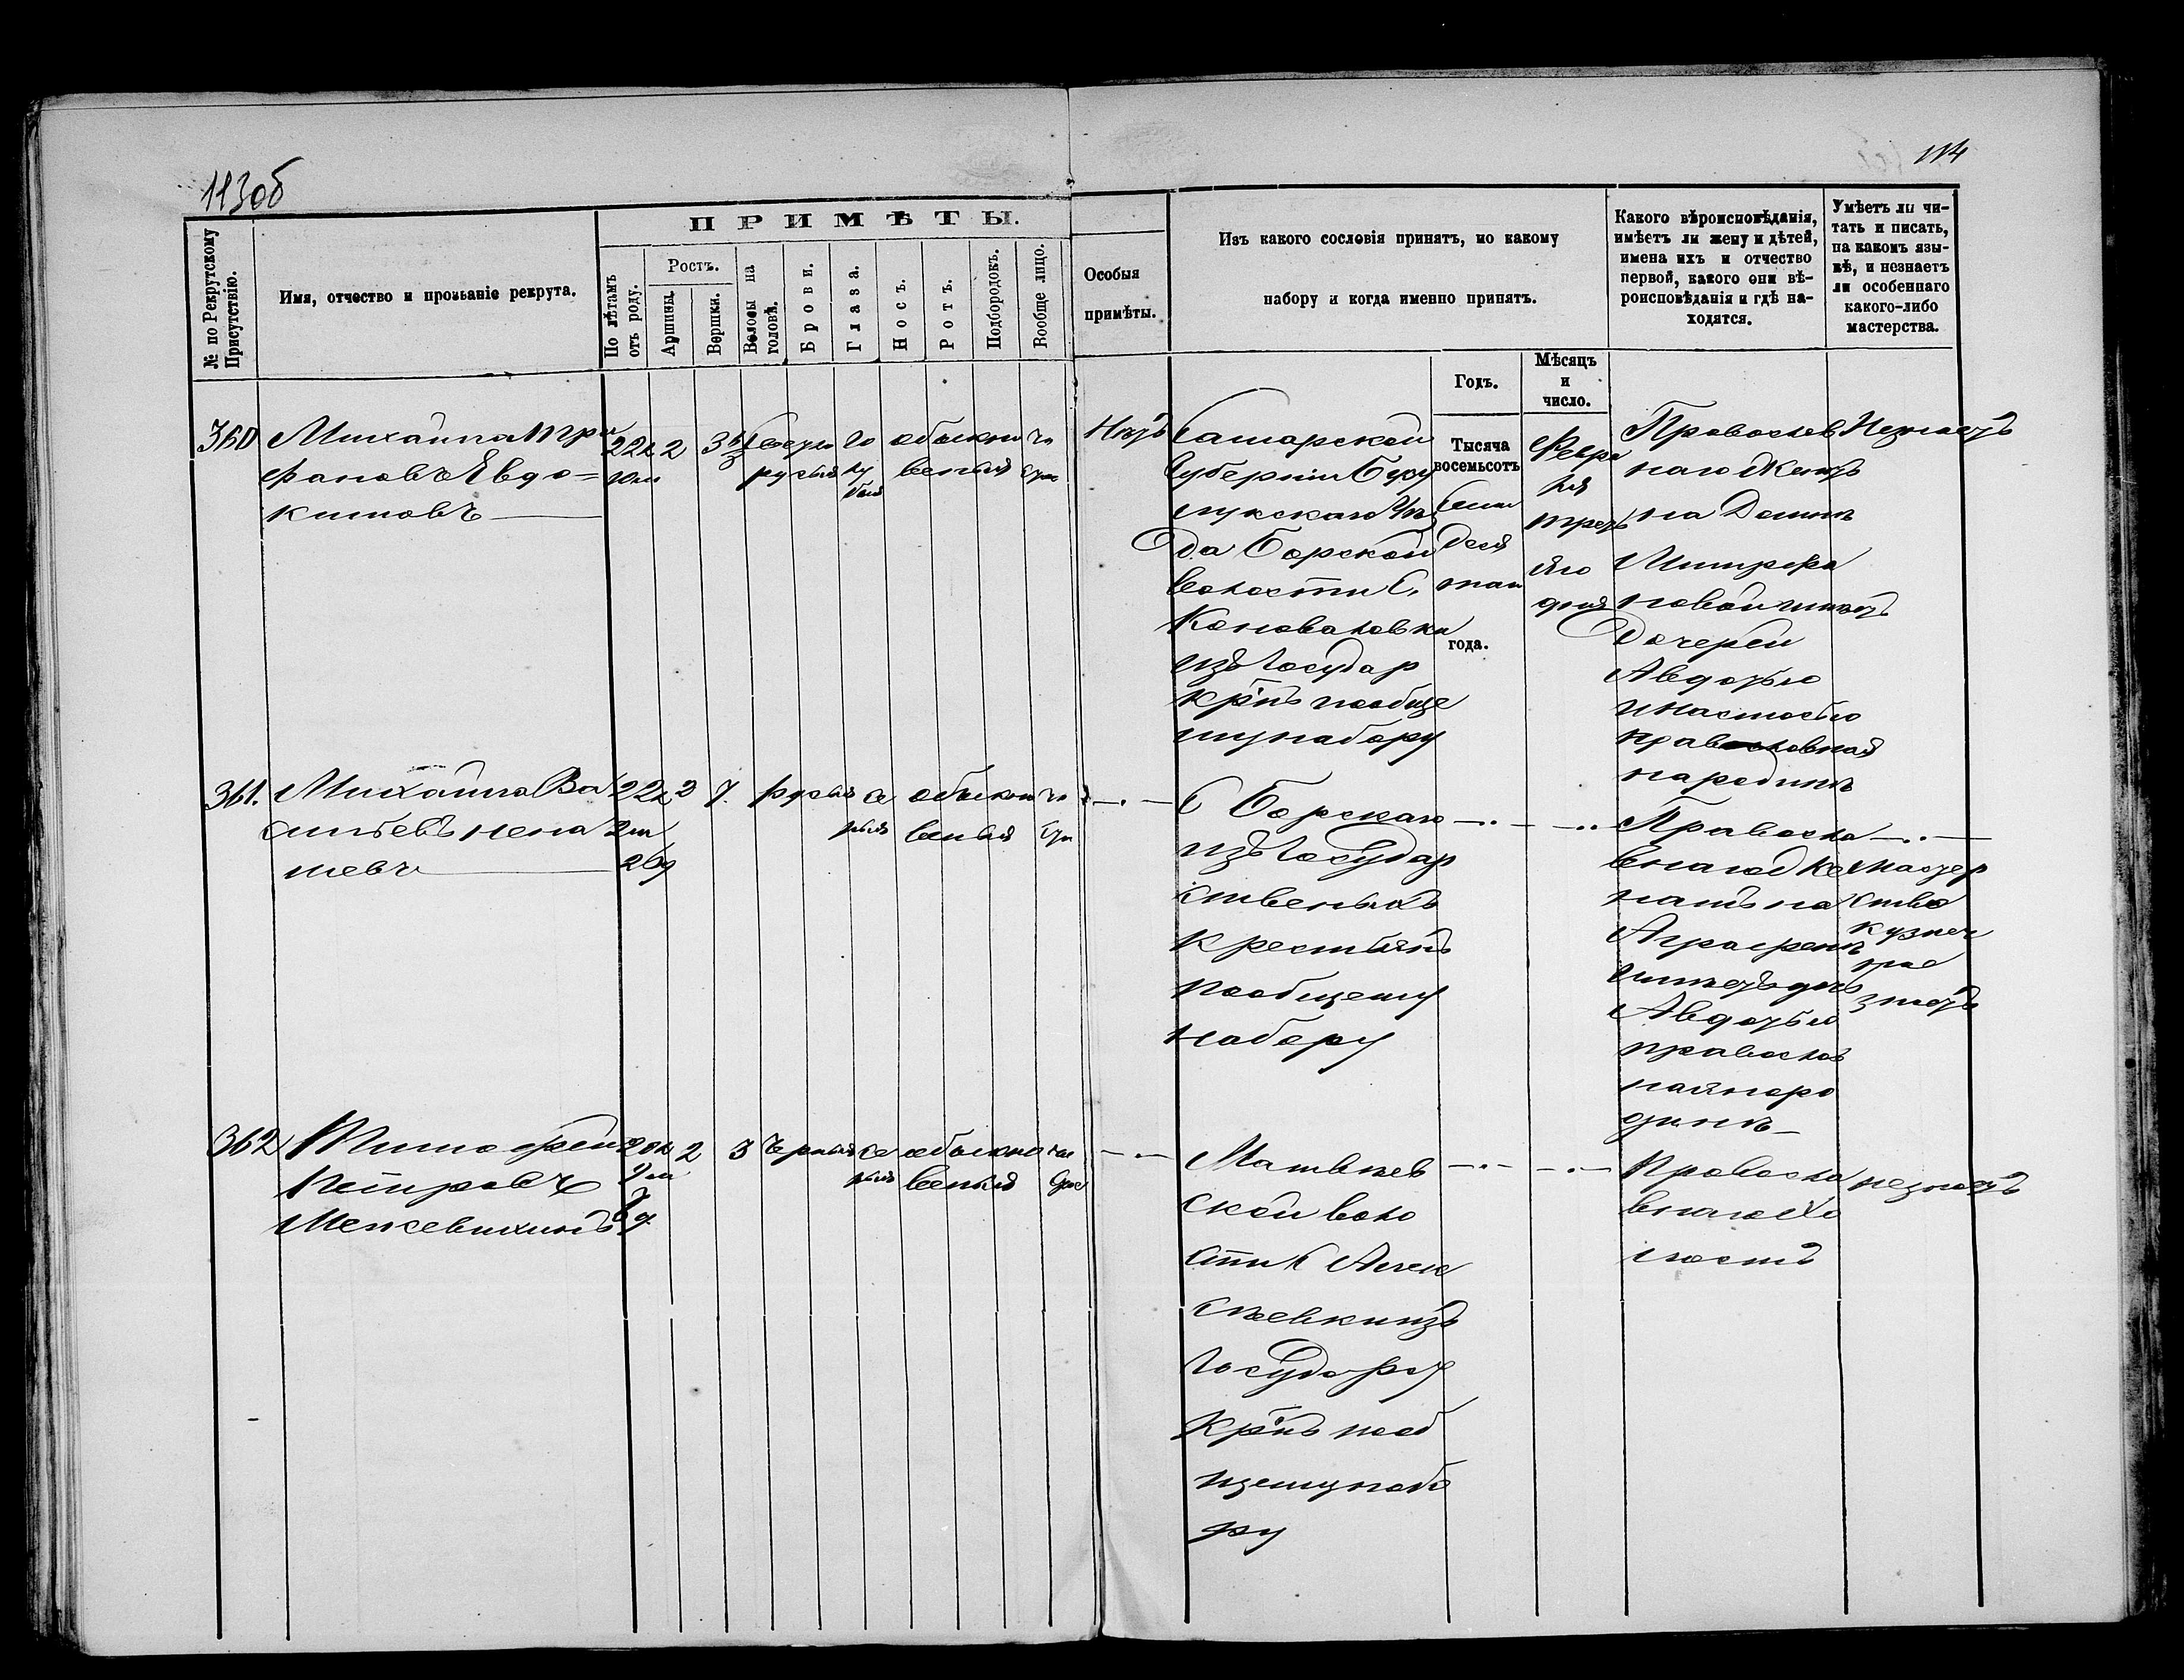 113об
114
№ по Рекрутскому Присутствію.
Имя, отчество и прозьаніе рекрута.
ПРИМѢТЫ.
По лѣтамъ отъ роду.
Ростъ.
Аршины.
Вершки.
Волосы на головѣ.
Брови.
Глаза.
Носъ.
Ротъ.
Подбородокъ.
Вообще лицо.
Особыя
примѣты.
Изъ какого сословія принятъ, по какому
набору и когда именно принятъ.
Годъ.
Мѣсяцъ
и
число.
Какого вѣроисповѣданія,
имѣетъ ли жену и дѣтей,
имена ихъ и отчество
первой, какого они вѣ-
роисповѣданія и гдѣ на-
ходятся.
Умѣетъ ли чи-
тать и писать,
на какомъ язы-
кѣ, и незнаетъ
ли особеннаго
какого-либо
мастерства.
360
Михайла Три
фановъ Явдо=
кимовъ
22л
10м
2
русыя
го
лу
быя
обыкно
веныя
чи
стое
Нѣтъ
Самарской
Губерніи Бузу
лукскаго Уѣз
да Борской
волости С.
Коноваловки
изъ Государ
кр̃нъ пообще
му набору
Тысяча
восемьсотъ
Семи
деся
таго
года.
Февра
ля
треть
яго
дня
Православ
наго Женатъ
на Домнѣ
Митрофа
новой имѣетъ
Дочерей
Авдотью
и Настасью
православная
народинѣ
Незнаетъ
361.
Михайла Ва
сильевъ Нена
шевъ
22л
2м
26д
2
7.
русыя
се
рыя
обыкно
веныя
чи
стое
С Борскаго
изъ Государ
ственыхъ
крестьянъ
пообщему
набору
Правосла
внаго Же
натъ на
Аграфенѣ
имѣетъ дочь
Авдотью
православ
ная наро
динѣ
мастер
ство
кузнеч
ное
знаетъ
362
Тимофей
Петровъ
Межевихинъ
20л
2
3
Черныя
се
рыя
обыкно
веныя
чи
стое
Матвѣев
ской воло
сти С Алек
сѣевки изъ
Государст
кр̃нъ пооб
щему набо
ру
Правосла
внаго Хо
лостъ
незнаетъ